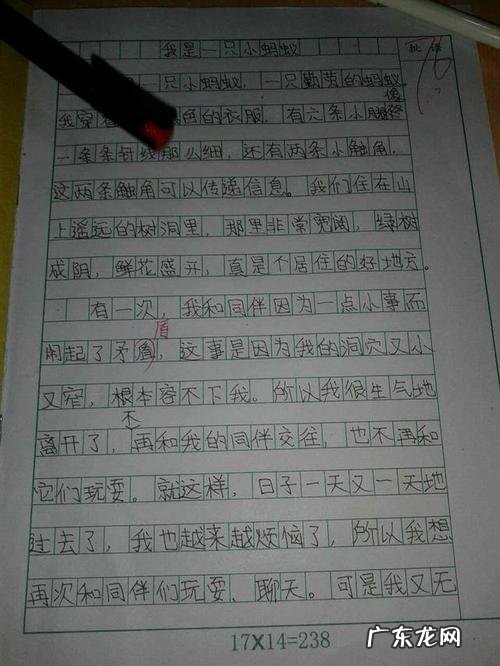 我是一只小蚂蚁
批语
76
一只小蚂蚁，一只勤劳的蚂蚁。
我穿 色的衣服，有六条小腿 像
一条条针线那么细，还有两条小触角，
这两条触角可以传递信息。我们住在山
上遥远的树洞里，那里非常宽阔，绿树
成阴，鲜花盛开，真是个居住的好地方。
有一次，我和同伴因为一点小事而
盾
闹起了矛 ，这事是因为我的洞穴又小
又窄，根本容不下我。所以我很生气地
不
离开了，再和我的同伴交往，也不再和
它们玩耍。就这样，日子一天又一天地
过去了，我也越来越烦恼了，所以我想
再次和同伴们玩耍、聊天。可是我又无
17×14=238
广东龙网